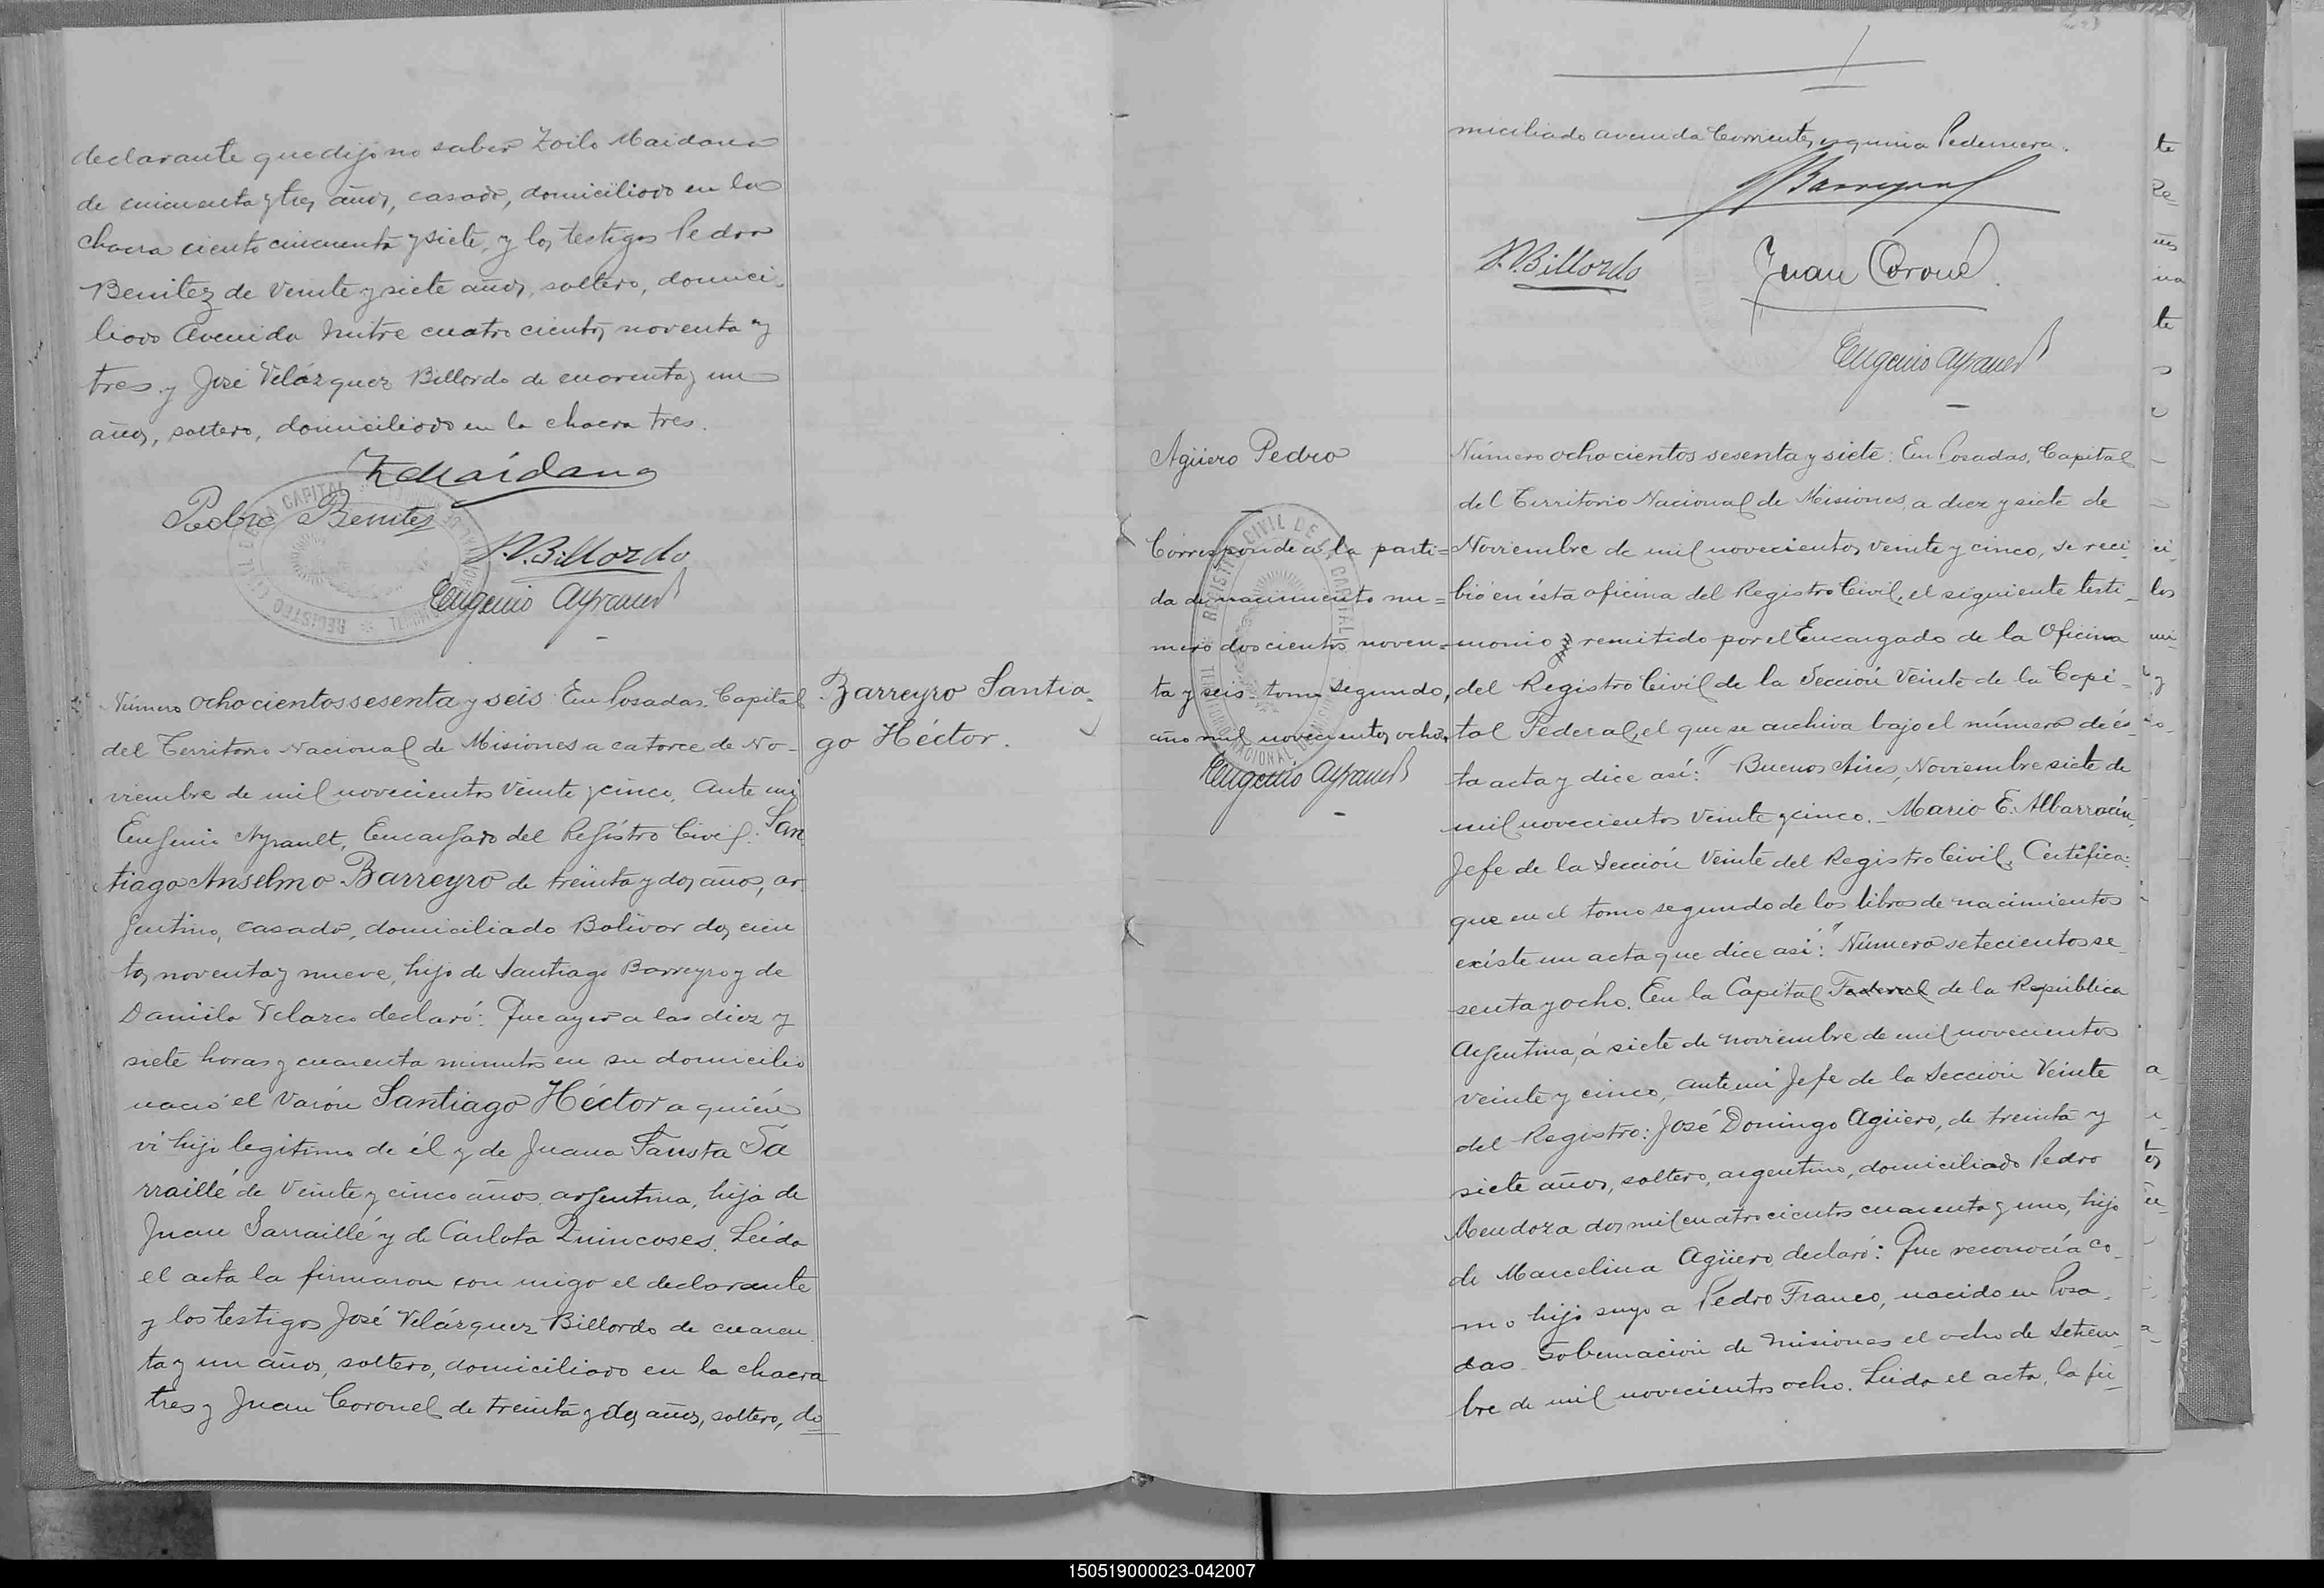 declarante que dijo no saber Zoilo Maidana
de cincuenta y tres años, casado, domiciliado en la
chacra ciento cincuenta y siete, y los testigos Pedro
Benitez de veinte y siete años, soltero, domici-
liado Avenida Mitre cuatrocientos noventa y
tres y José Velázquez Billordo de cuarenta y un
años, soltero, domiciliado en la chacra tres.
Z Maidana
Pedro Benitez
J.V.Billordo
Eugenio Ayrault
Número ochocientos sesenta y seis: En Posadas, Capital
del Territorio Nacional de Misiones a catorce de No-
viembre de mil novecientos veinte y cinco, Ante mi
Eugenio Ayrault, Encargado del Registro Civil: San
tiago Anselmo Barreyro de treinta y dos años, ar
gentino, casado, domiciliado Bolivar dos cien
tos noventa y nueve, hijo de Santiago Barreyro y de
Daniila Velazco declaró: Que ayer a las diez y
siete horas y cuarenta minutos en su domicilio
nació el varón Santiago Héctor a quién
vi hijo legitimo de él y de Juana Fausta Sa
rraillé de veinte y cinco años, argentina, hija de
Juan Sarraillé y de Carlota Quincoses. Leida
el acta la firmaron con migo el declarante
y los testigos José Velázquez Billordo de cuaren
ta y un años, soltero, domiciliado en la chacra
tres y Juan Coronel de treinta y dos años, soltero, do
Barreyro Santia-
go Héctor.
miciliado avenida Corrientes esquina Pedernera.
S Barreyro
J.V.Billordo
Juan Coronel
Eugenio Ayrault
Agüero Pedro
Corresponde a la parti=
da de nacimiento nu=
mero doscientos noven=
ta y seis tomo segundo,
año mil novecientos ocho.
Eugenio Ayrault
REGISTRO CIVIL DE LA CAPITAL
TERRITORIO NACIONAL DE MISIONES
Número ochocientos sesenta y siete: En Posadas, Capital
del Territorio Nacional de Misiones, a diez y siete de
Noviembre de mil novecientos veinte y cinco, se reci-
bió en ésta oficina del Registro Civil, el siguiente testi-
monio remitido por el Encargado de la Oficina
del Registro Civil de la Sección Veinte de la Capi=
tal Federal, el que se archiva bajo el número de és-
ta acta y dice así: "Buenos Aires, Noviembre siete de
mil novecientos veinte y cinco.- Mario E. Albarracín,
Jefe de la Sección Veinte del Registro Civil, Certifica:
que en el tomo segundo de los libros de nacimientos
existe un acta que dice así: "Número setecientos se-
senta y ocho. En la Capital Federal de la República
Argentina, á siete de noviembre de mil novecientos
veinte y cinco, ante mi Jefe de la Sección Veinte
del Registro: José Domingo Agüero, de treinta y
siete años, soltero, argentino, domiciliado Pedro
Mendoza dos mil cuatrocientos cuarenta y uno, hijo
de Marcelina Agüero, declaró: Que reconocía co-
mo hijo suyo a Pedro Franco, nacido en Posa-
das Gobernación de Misiones el ocho de Setiem-
bre de mil novecientos ocho. Leida el acta, la fir-
150519000023-042007